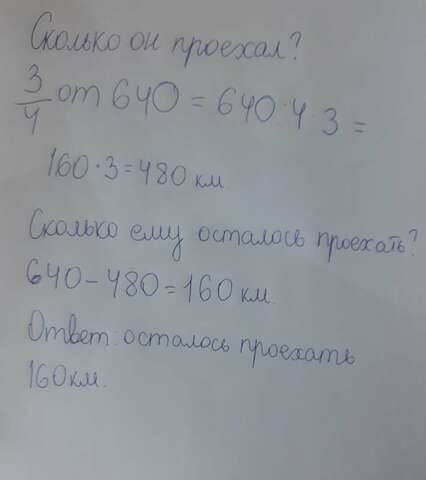 Сколько он проехал?
3/4 от 640 = 640·4·3 =
160·3=480 км.
Сколько ему осталось проехать?
640-480=160 км.
Ответ: осталось проехать
160км.